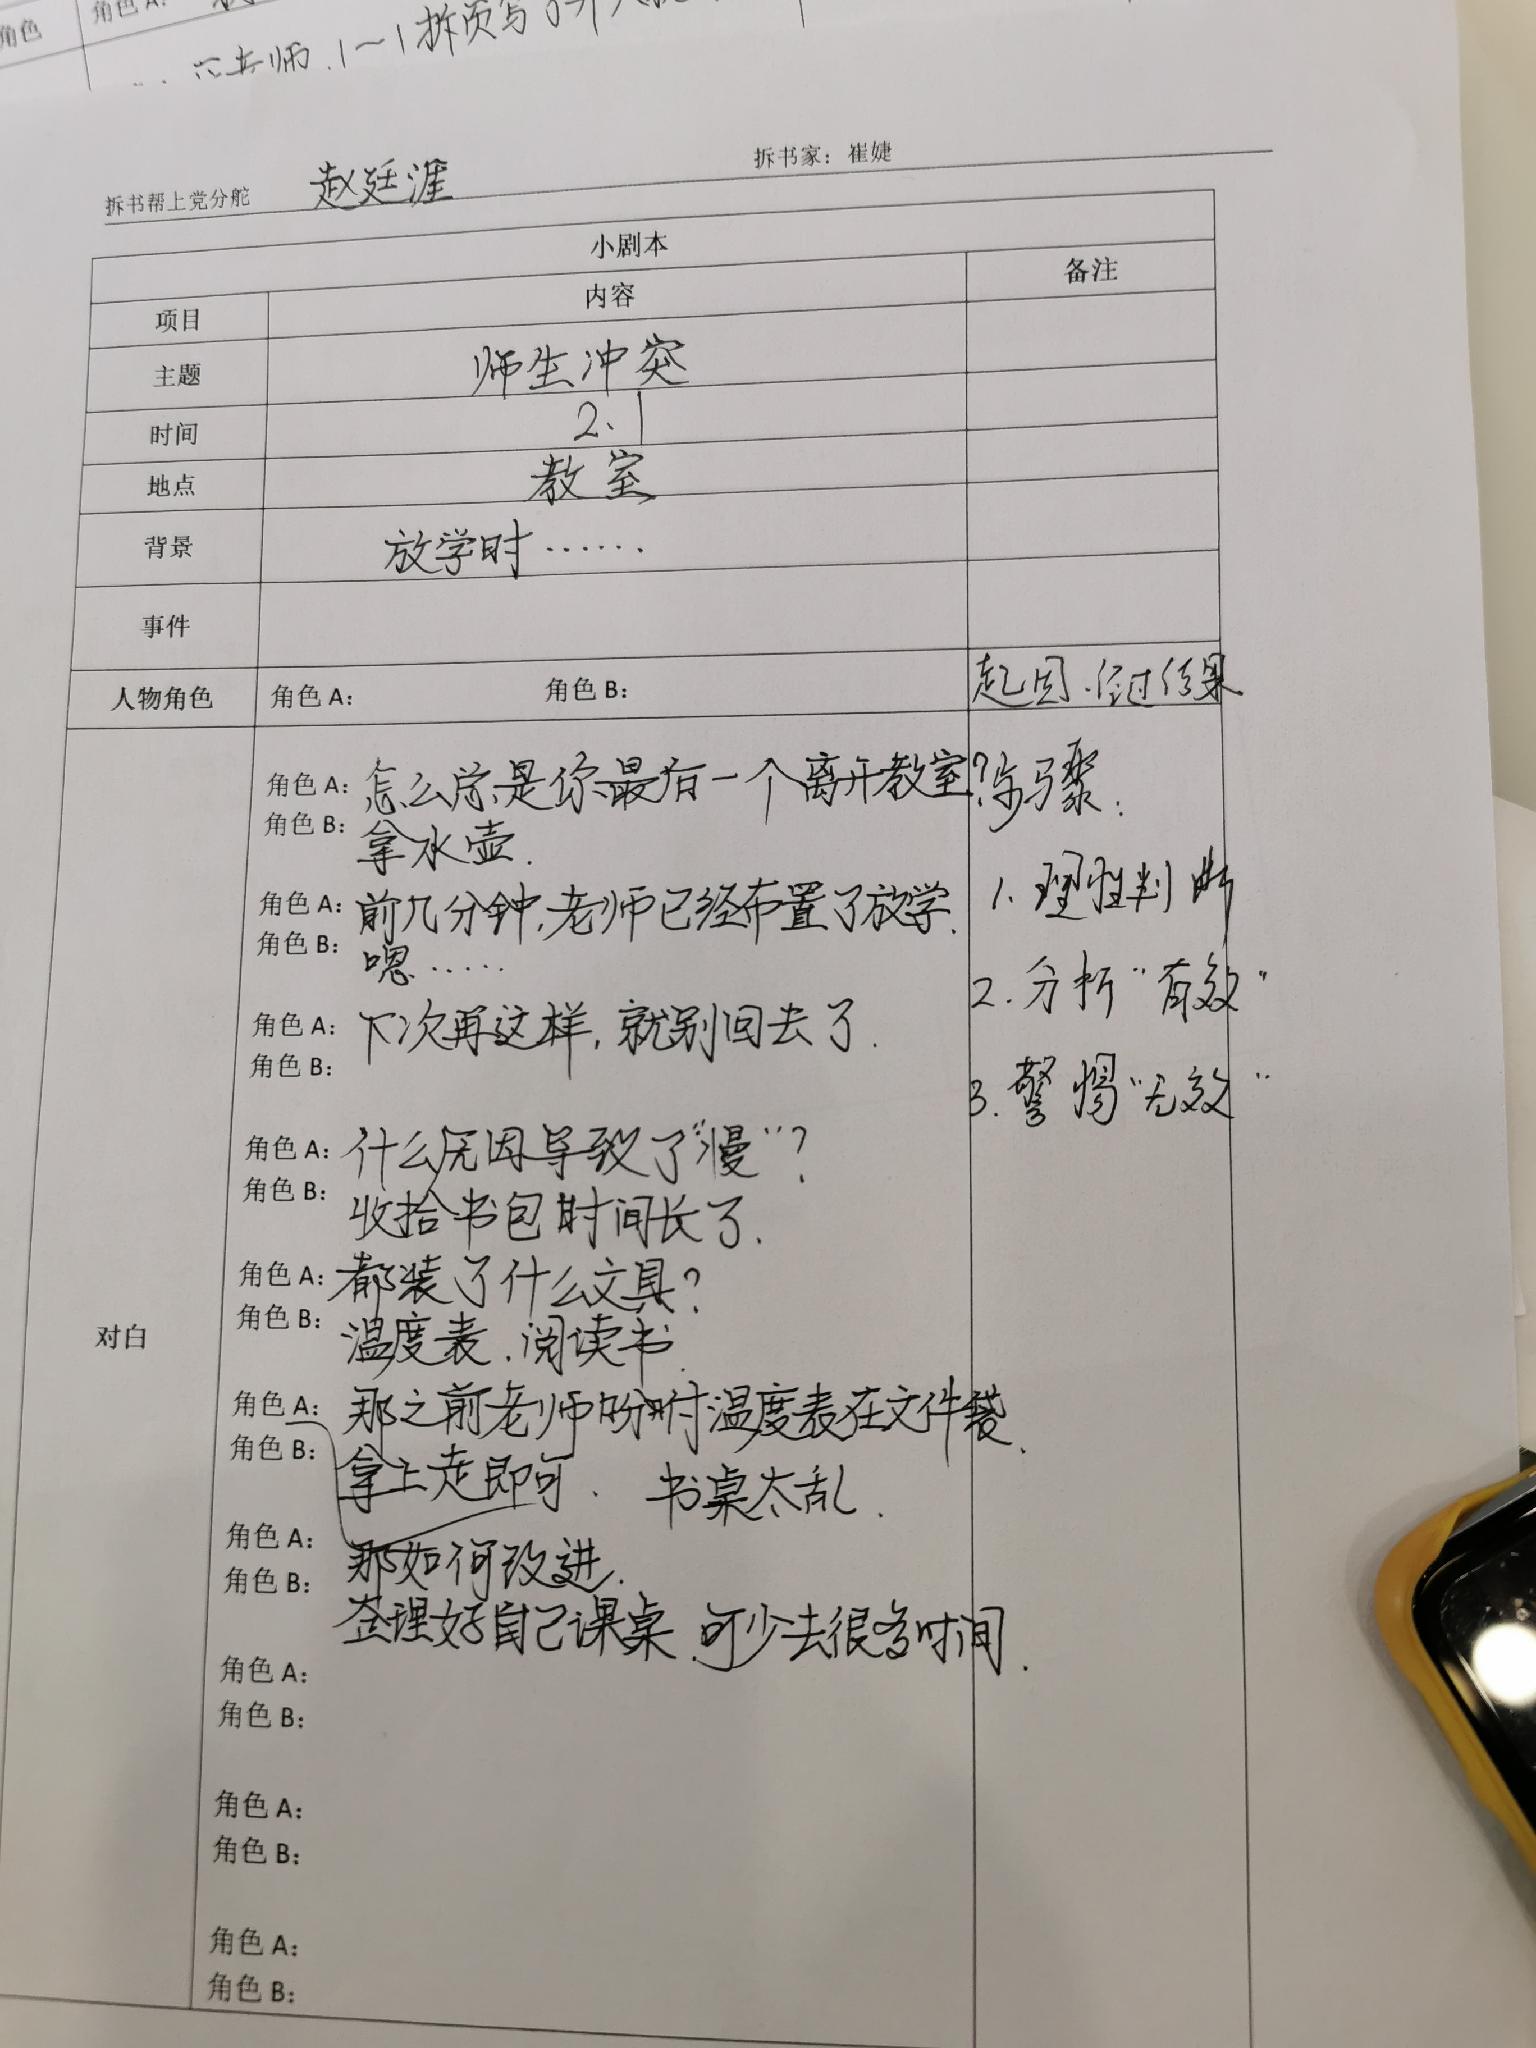 角色
角色A:
老师.1~1拆页写
拆书帮上党分舵 赵廷涯 拆书家：崔婕
小剧本
项目 内容 备注
主题 师生冲突
时间 2、1
地点 教室
背景 放学时……
事件
人物角色 角色A: 角色B: 起因.经过结果
对白
角色A: 怎么总是你最后一个离开教室? 步骤:
角色B: 拿水壶.
角色A: 前几分钟,老师已经布置了放学. 1.理性判断
角色B: 嗯……
2.分析"有效"
角色A: 下次再这样,就别回去了.
角色B:
3.警惕"无效"
角色A: 什么原因导致了"慢"?
角色B: 收拾书包时间长了.
角色A: 都装了什么文具?
角色B: 温度表.阅读书.
角色A: 那之前老师吩咐温度表在文件袋.
角色B: 拿上走即可. 书桌太乱.
角色A: 那如何改进.
角色B: 整理好自己课桌.可少去很多时间.
角色A:
角色B:
角色A:
角色B:
角色A:
角色B: